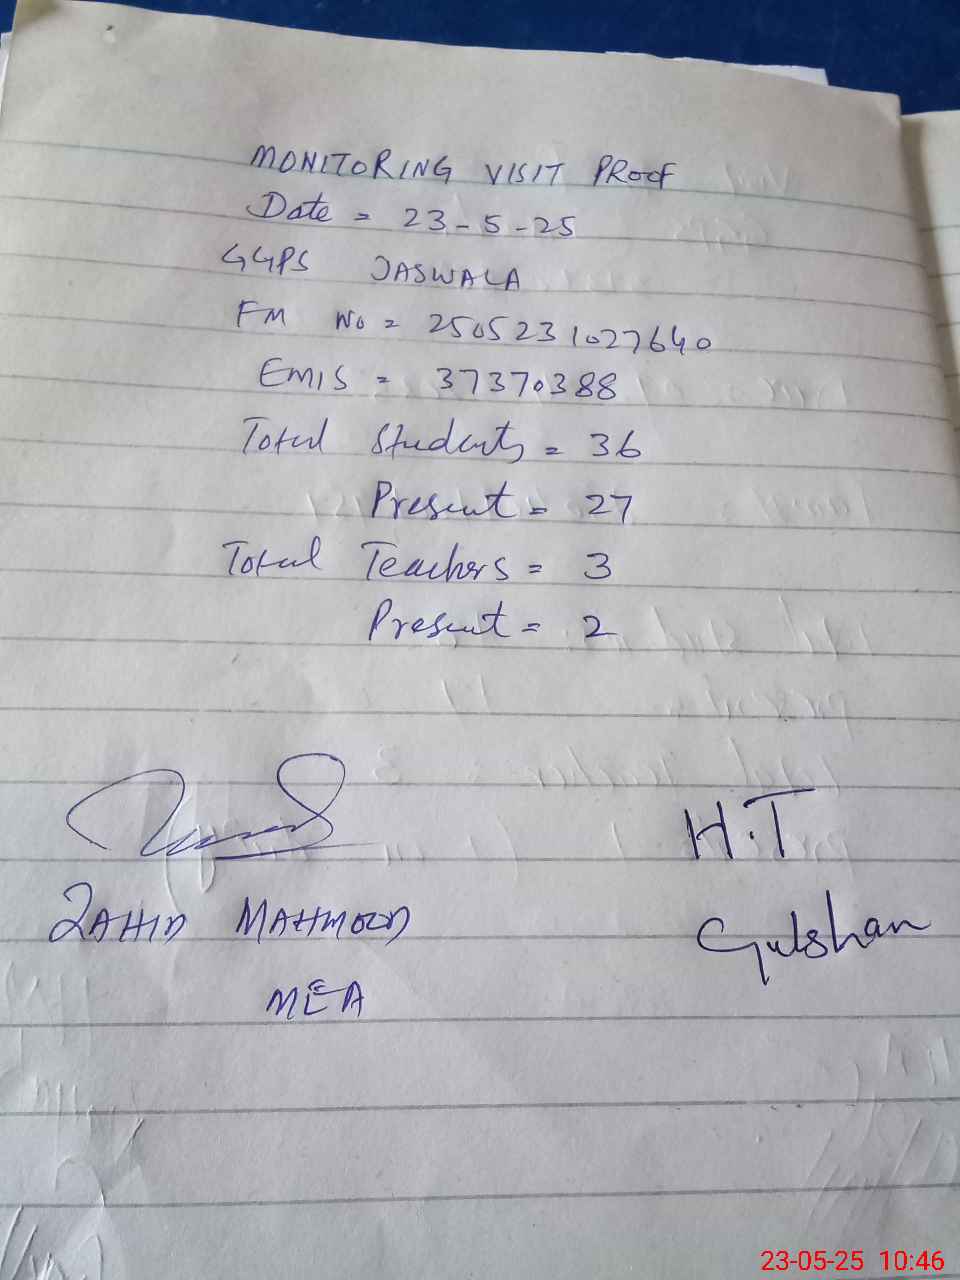 MONITORING VISIT PROOF
Date = 23-5-25
GGPS JASWALA
FM No = 2505231027640
EMIS = 37370388
Total Students = 36
Present = 27
Total Teachers = 3
Present = 2
H.T
ZAHID MAHMOOD Gulshan
MEA
23-05-25 10:46